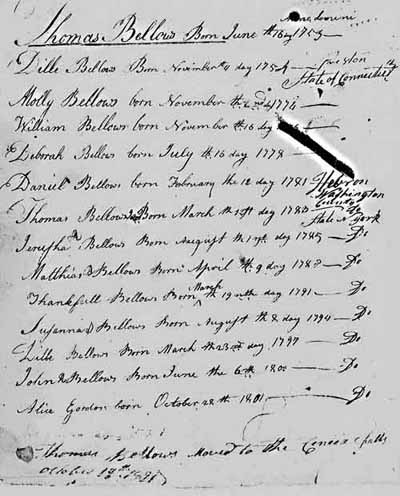 Thomas Bellows Born June th 16 day 175
Dille Bellows Born November th 4 day 175
Preston
State of Connecticut
Molly Bellows born November the 2nd 1776
William Bellows born November th 16 day
Deborah Bellows born July th 16 day 1778
Daniel Bellows born February the 12 day 1781
Hebron
Washington
County
State N York
Thomas Bellows Born March th day 178
Do
Jerusha Bellows Born August th day 1785
Do
Matthias Bellows Born April th 9 day 178
Do
Thankfull Bellows Born March th 19 day 1791
Do
Susannah Bellows Born August th 8 day 1794
Do
Dille Bellows Born March th 23 day 1797
Do
John Bellows Born June the 6th 1800
Do
Alice Gordon born October 28 th 1801
Do
Thomas Bellows Moved to the falls
October 19th